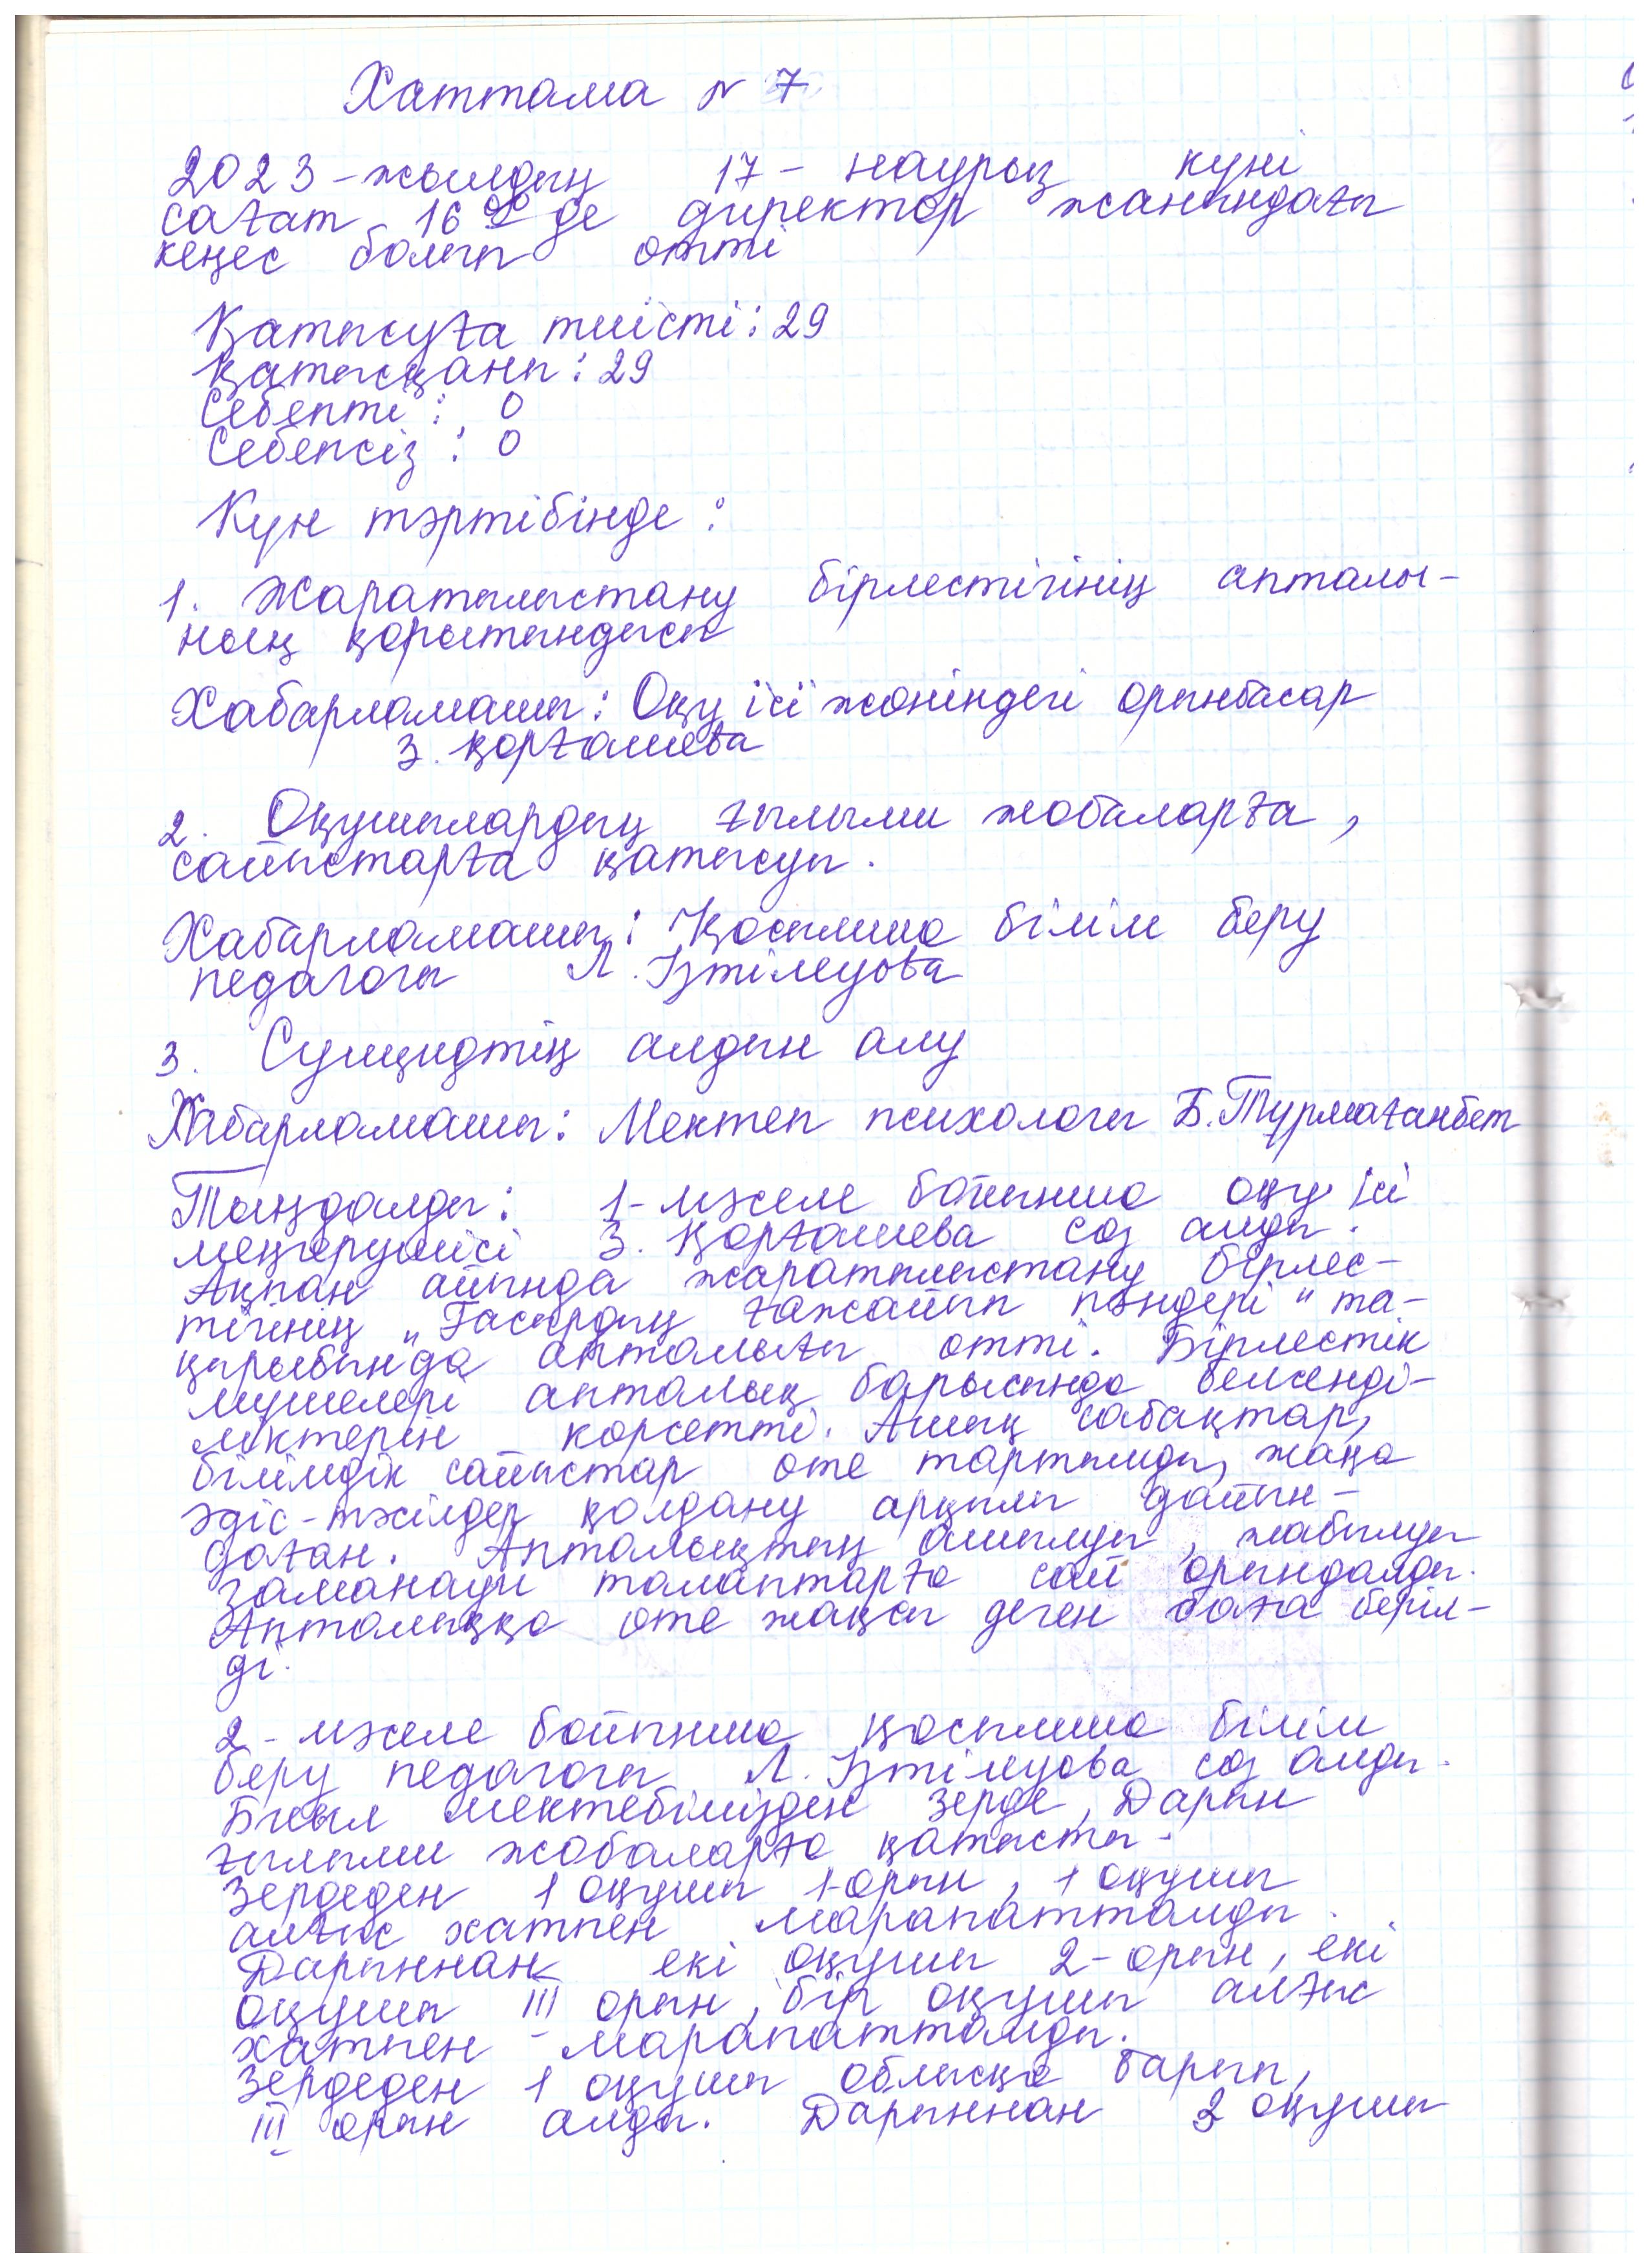 Хаттама № 7
2023-жылдың 17- наурыз күні
сағат 16 00 де директор жанындағы
кеңес болып өтті
Қатысуға тиісті: 29
Қатысқаны: 29
Себепті: 0
Себепсіз: 0
Күн тәртібінде:
1. Жаратылыстану бірлестігінің апталы-
ның қорытындысы
Хабарламашы: Оқу ісі жөніндегі орынбасар
З. Қорғашева
2. Оқушылардың ғылыми жобаларға,
сайыстарға қатысуы.
Хабарламашы: Қосымша білім беру
педагогы Л. Ізтілеуова
3. Суицидтің алдын алу
Хабарламашы: Мектеп психологы Б. Турмағанбет
Тыңдалды: 1-мәселе бойынша оқу ісі
меңгерушісі З. Қорғашева сөз алды.
Ақпан айында жаратылыстану бірлес-
тігінің „Ғасырдың ғажайып пәндері" та-
қырыбында апталығы өтті. Бірлестік
мүшелері апталық барысында белсенді-
ліктерін көрсетті. Ашық сабақтар,
білімдік сайыстар өте тартымды, жаңа
әдіс-тәсілдер қолдану арқылы дайын-
даған. Апталықтың ашылуы, жабылуы
заманауи талаптарға сай орындалды.
Апталыққа өте жақсы деген баға беріл-
ді.
2-мәселе бойынша қосымша білім
беру педагогы Л. Ізтілеуова сөз алды.
Биыл мектебімізден Зерде, Дарын
ғылыми жобаларға қатысты.
Зердеден 1 оқушы 1-орын, 1 оқушы
алғыс хатпен марапатталды.
Дарыннан екі оқушы 2-орын, екі
оқушы III орын, бір оқушы алғыс
хатпен марапатталды.
Зердеден 1 оқушы облысқа барып,
III орын алды. Дарыннан 2 оқушы